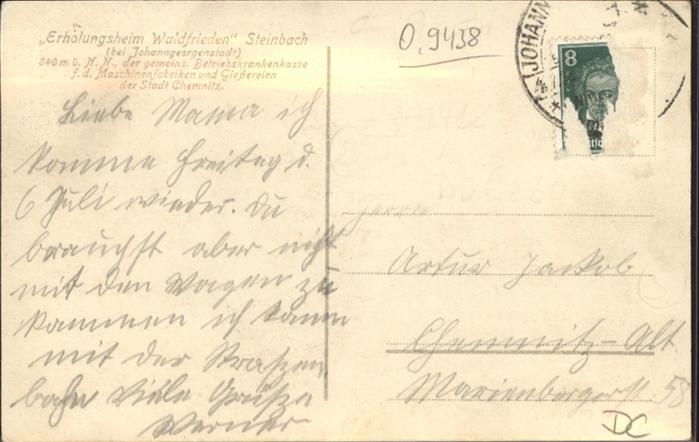 „Erholungsheim Waldfrieden" Steinbach
(bei Johanngeorgenstadt)
840 m ü. N. N., der gemeins. Betriebskrankenkasse
f. d. Maschinenfabriken und Gießereien
der Stadt Chemnitz.
0,9438
(JOHANN
8
Liebe Mama ich
komme Freitag d.
6 Juli wieder. Du
brauchst aber nicht
mit den Wagen zu
kommen ich kann
mit der Straszen
bahn Viele Grüsze
Werner
Herrn
Artur Jackob
Chemnitz-Alt
Marienbergerst 58
DC